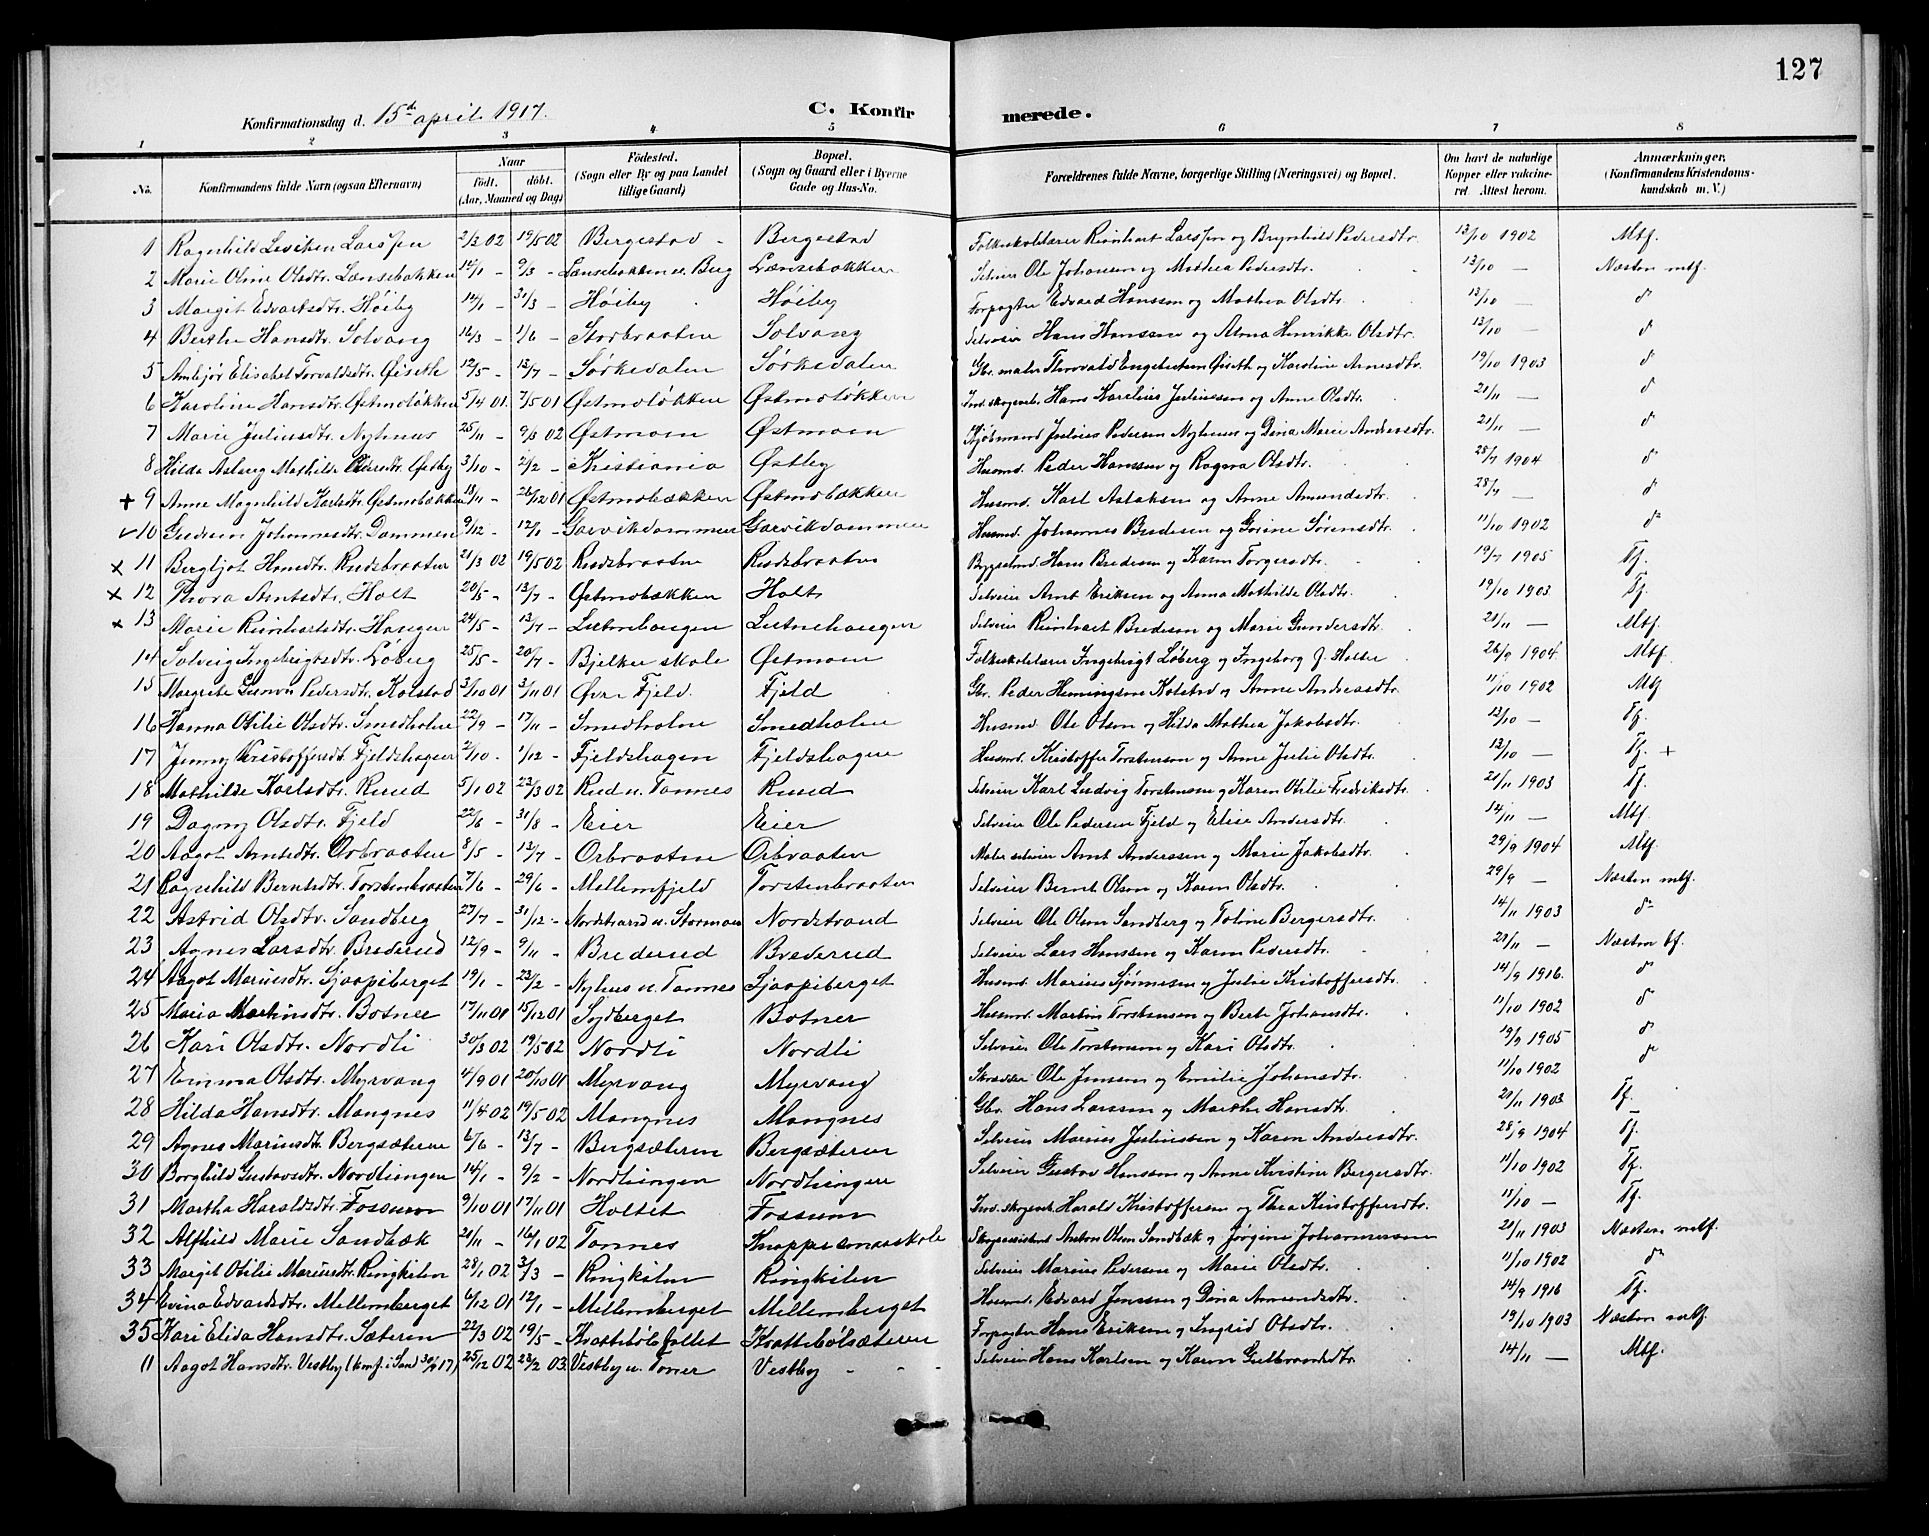 127
Konfirmationsdag d. 15de april 1917.
C. Konfirmerede.
1 2 3 4 5 6 7 8
No. Konfirmandens fulde Navn (ogsaa Efternavn) Naar født. døbt. (Aar, Maaned og Dag) Fødested. (Sogn eller By og paa Landet tillige Gaard) Bopæl. (Sogn og Gaard eller i Byerne Gade og Hus-No. Forældrenes fulde Navne, borgerlige Stilling (Næringsvei) og Bopæl. Om havt de naturlige Kopper eller vaccineret. Attest herom. Anmærkninger. (Konfirmandens Kristendomskundskab m. V.)
1 Ragnhild Larssen 2/2 02 19/5 02 Bergestad Bergestad Folkeskolelærer Reinhart Larssen og Brynhild Pedersdtr. 13/10 1902 Mtf.
2 Marie Oline Olsdtr. Lænsebakken 14/1 - 9/3 - Lænsebakken u. Berg Lænsebakken Selveier Ole Johansen og Mathea Pedersdtr. 13/10 — Næsten mtf.
3 Margit Edvartsdtr. Høiby 14/1 - 31/3 - Høiby Høiby Forpagter Edvard Hanssen og Mathea Olsdtr. 13/10 — do
4 Berthe Hansdtr. Solvang 16/3 - 1/6 - Storbraaten Solvang Selveier Hans Hanssen og Anna Henrikke Olsdtr. 13/10 — do
5 Ambjør Elisabet Torvaldsdtr. Øiseth 12/5 - 13/7 - Sørkedalen Sørkedalen Gbr. maler Thorvald Engebretsen Øiseth og Karoline Arnesdtr. 19/10 1903 do
6 Karoline Hansdtr. Østmoløkken 5/4 01. 7/5 01 Østmoløkken Østmoløkken Ind. skogsarb. Hans Karelius Juliussen og Anne Olsdtr. 21/11 — do
7 Marie Juliusdtr. Nyhuus 25/11 - 9/3 02 Østmoen Østmoen Kjøbmand Julius Pedersen Nyhuus og Dina Marie Andersdtr. 21/11 — do
8 Hilda Aslaug Mathilde Pedersdtr. Østby 3/10 - 2/2 - Kristiania Østby Husmd. Peder Hanssen og Ragna Olsdtr. 28/7 1904 do
+ 9 Anne Magnhild Karlsdtr. Østmobakken 13/11 - 26/12 01 Østmobækken Østmobækken Husmd. Karl Aslaksen og Anne Amundsdtr. 28/7 — do
10 Gudrun Johannesdtr. Dammen 9/12 - 12/1 - Garvikdammen Garvikdammen Husmd. Johannes Bredesen og Gorine Sørensdtr. 11/10 1902 do
x 11 Bergljot Hansdtr. Rudsbraaten 21/3 02 19/5 02 Rudsbraaten Rudsbraaten Bygselmd. Hans Bredesen og Karen Torgersdtr. 19/7 1905 Tf.
x 12 Thora Arntsdtr. Holt 20/5 - 13/7 - Østmobækken Holt Selveier Arnt Eriksen og Anna Mathilde Olsdtr. 19/10 1903 Tf.
x 13 Marie Reinhartsdtr. Haugen 24/5 - 13/7 - Lutnehaugen Lutnehaugen Selveier Reinhart Bredesen og Marie Gundersdtr. 21/11 — Mtf.
14 Solveig Ingebrigtsdtr. Løberg 25/5 - 20/7 - Bjelker skole Østmoen Folkeskolelærer Ingebrigt Løberg og Ingeborg J. Holter 26/9 1904. Mtf.
15 Margrete Pedersdtr. Kolstad 3/10 01 3/11 01 Øvre Fjeld. Fjeld Gbr. Peder Hemingsen Kolstad og Anne Andreasdtr. 11/10 1902 Mtf
16 Hanna Otilie Olsdtr. Smedholen 22/9 - 17/11 - Smedholen Smedholen Husmd. Ole Olsen og Hilda Mathea Jakobsdtr. 13/10 — Tf.
17 Jenny Kristoffersdt. Fjeldshagen 2/10 - 1/12 - Fjeldshagen Fjeldshagen Husmd. Kristoffer Torstensen og Anne Julie Olsdtr. 13/10 — Tf. +
18 Mathilde Karlsdtr. Ruud 5/1 02 23/3 02 Rud u. Tannes Ruud Selveier Karl Ludvig Torstensen og Karen Otilie Fredriksdtr. 21/11 1903 Tf.
19 Dagny Olsdtr. Fjeld 22/6 - 31/8 - Eier Eier Selveier Ole Pedersen Fjeld og Elise Andersdtr. 14/11 — Mtf.
20 Aagot Arntsdtr. Orbraaten 8/5 - 13/7 - Orbraaten Orbraaten Maler selveier Arnt Anderssen og Marie Jakobsdtr. 29/9 1904 Mtf.
21 Ragnhild Berntsdtr. Torstenbraaten 7/6 - 29/6 - Mellemfjeld Torstenbraaten Selveier Bernt Olsen og Karen Olsdtr. 29/9 — Næsten mtf.
22 Astrid Olsdtr. Sandberg 27/7 - 31/12 - Nordstrand u. Stormoen Nordstrand Selveier Ole Olsen Sandberg og Toline Bergersdtr. 14/11 1903 do
23 Agnes Larsdtr. Brederud 12/9 - 9/11 - Brederud Brederud Selveier Lars Hanssen og Karen Pedersdtr. 21/11 — Næsten tf.
24 Aagot Mariusdtr. Sjaapiberget 19/1 - 23/2 - Nyhus u. Tannes Sjaapiberget Husmd. Marius Sjønnesen og Julie Kristoffersdtr. 14/9 1916. do
25 Maria Martinsdtr. Botner 17/11 01 15/12 01 Sydberget Botner Husmd. Martin Torstensen og Berte Johansdtr. 11/10 1902 do
26 Kari Olsdtr. Nordli 30/3 02 19/5 02 Nordli Nordli Selveier Ole Torstensen og Kari Olsdtr. 19/9 1905 do
27 Emma Olsdtr. Myrvang 4/9 01 20/10 01 Myrvang Myrvang Skrædder Ole Jenssen og Emilie Johansdtr. 11/10 1902 do
28 Hilda Hansdtr. Mangnes 11/4 02 19/5 02 Mangnes Mangnes Gbr. Hans Larssen og Marthe Hansdtr. 21/11 1903 Tf.
29 Agnes Mariusdtr. Bergsæteren 6/6 - 13/7 - Bergsæteren Bergsæteren Selveier Marius Juliussen og Karen Andersdtr. 28/9 1904 Tf.
30 Borghild Gustavsdtr. Nordhungen 14/1 - 9/2 - Nordhungen Nordhungen Selveier Gustav Hanssen og Anne Kristine Bergersdtr. 11/10 1902 Tf.
31 Martha Haraldsdtr. Fossum 9/10 01 17/11 01 Holtet Fossum Ind. skogsarb. Harald Kristoffersen og Thea Kristoffersdtr. 11/10 — Tf.
32 Alfhild Marie Sandbæk 21/11 - 16/1 02 Tannes skole Skogsassistent Anton Olsen Sandbæk og Jørgine Johannessen 21/11 1903 Næsten mtf.
33 Margit Otilie Mariusdtr. Ringkilen 28/1 02 31/3 - Ringkilen Ringkilen Selveier Marius Pedersen og Marie Olsdtr. 11/10 1902 do
34 Evina Edvardsdtr. Mellemberget 6/12 01 12/1 - Mellemberget Mellemberget Husmd. Edvard Jenssen og Dina Amundsdtr. 14/9 1916 Tf.
35 Kari Elida Hansdtr. Sæteren 22/3 02 19/5 - Krattebølsæteren Forpagter Hans Eriksen og Ingrid Olsdtr. 19/10 1903 Næsten mtf.
() Aagot Hansdtr. Vestby (konf. i Sand 30/9 17) 25/12 02 22/2 03 Vestby u. Toner Vestby - - - Selveier Hans Karlsen og Karen Gulbrandsdtr. 14/11 — Mtf.